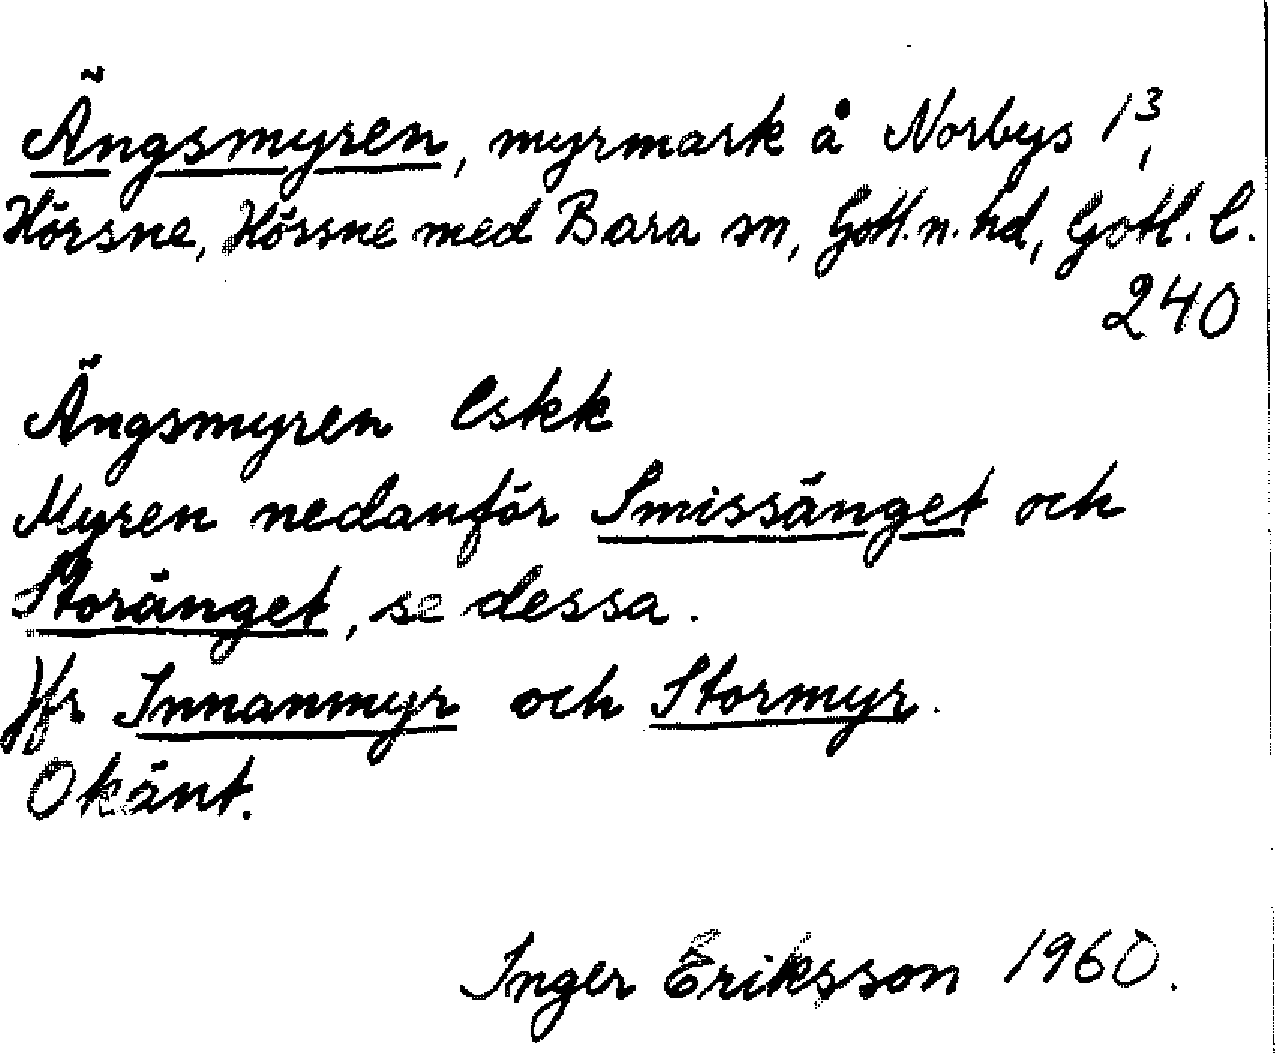 Ängsmyren, myrmark å Norbys 1³,
Hörsne, Hörsne med Bara sn, Gotl. n. hd, Gotl. l.
240
Ängsmyren Eskk
Myren nedanför Smissänget och
Storänget, se dessa.
Jfr Innanmyr och Stormyr.
Okänt.
Inger Eriksson 1960.